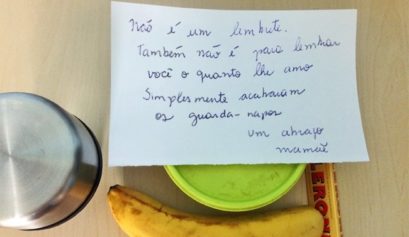 Não é um lembrete.
Também não é para lembrar
você o quanto lhe amo
Simplesmente acabaram
os guarda-napos
um abraço
mamãe
LERON